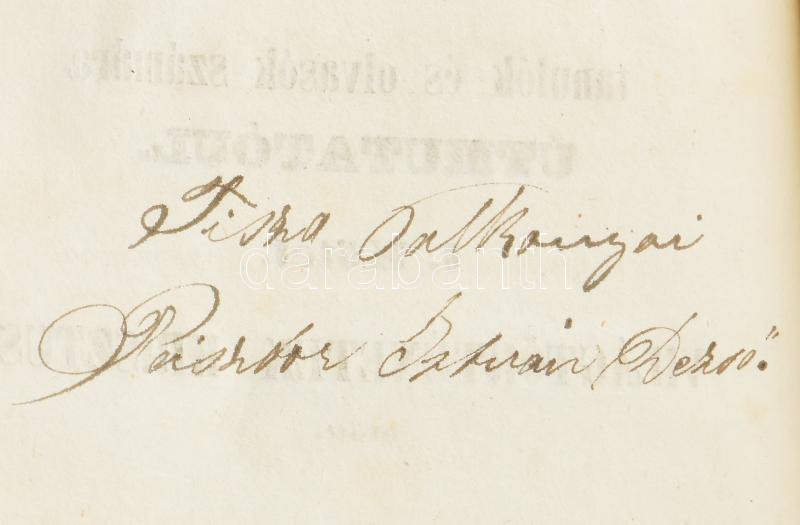 tanulók és olvasók számára
ÚTMUTATÓUL.
Tisza Palkonyai
darabanth
Pásztor István Dezső.